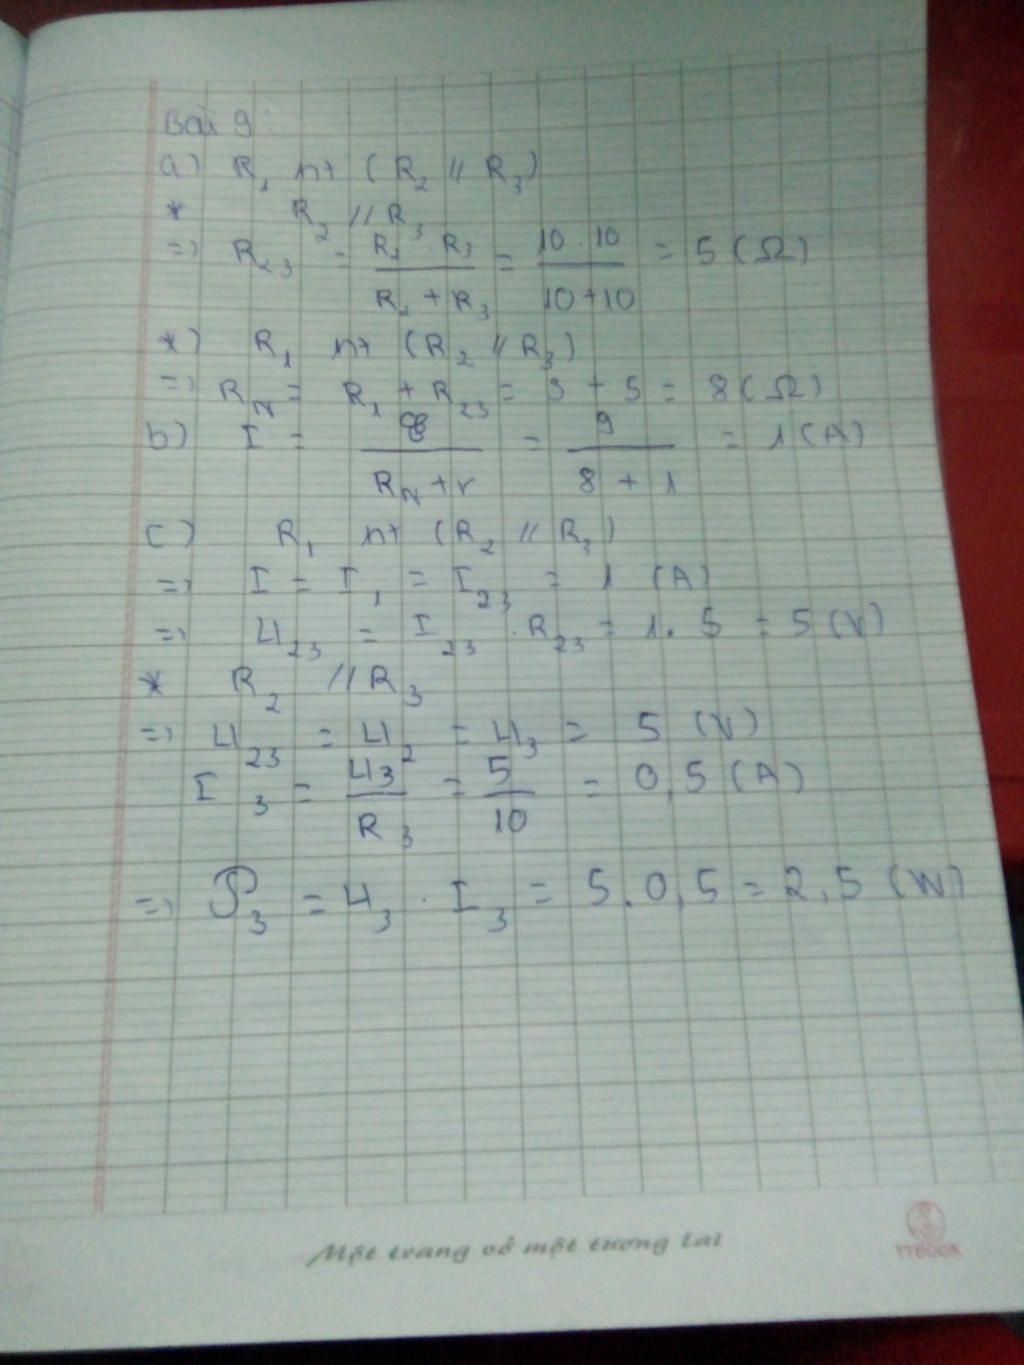 Bài 9:
a) R₁ nt (R₂ // R₃)
* R₂ // R₃
=> R₂₃ = R₂ . R₃ / R₂ + R₃ = 10 . 10 / 10 + 10 = 5 (Ω)
*) R₁ nt (R₂ // R₃)
=> R_N = R₁ + R₂₃ = 3 + 5 = 8 (Ω)
b) I = ℰ / R_N + r = 9 / 8 + 1 = 1 (A)
c) R₁ nt (R₂ // R₃)
=> I = I₁ = I₂₃ = 1 (A)
=> U₂₃ = I₂₃ . R₂₃ = 1 . 5 = 5 (V)
* R₂ // R₃
=> U₂₃ = U₂ = U₃ = 5 (V)
I₃ = U₃ / R₃ = 5 / 10 = 0,5 (A)
=> 𝒫₃ = U₃ . I₃ = 5 . 0,5 = 2,5 (W)
Một trang vở một tương lai
TTBOOK